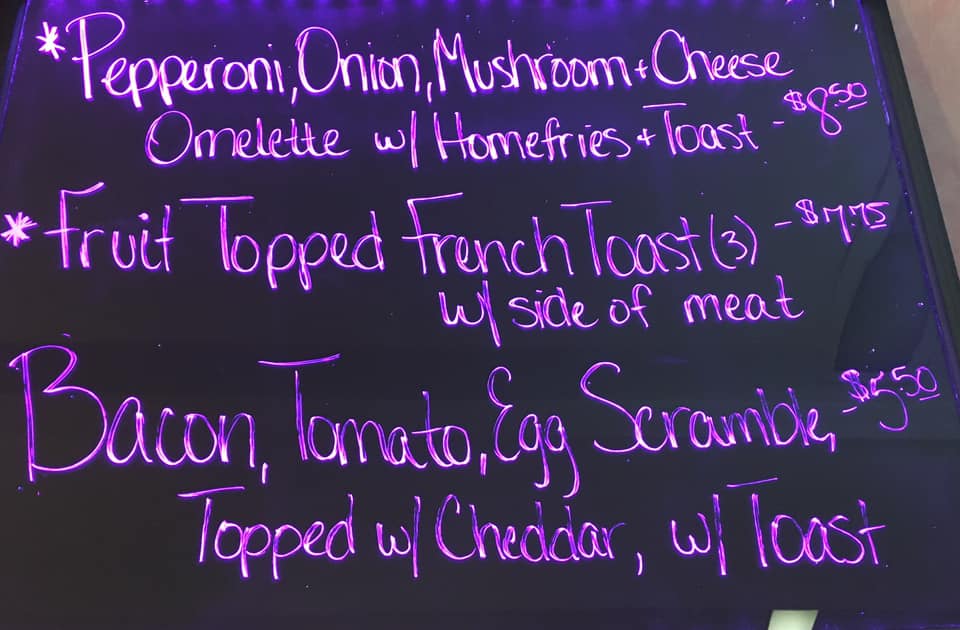 *Pepperoni, Onion, Mushroom + Cheese
Omelette w/ Homefries + Toast - $8.50
*Fruit Topped French Toast (3) - $7.75
w/ side of meat
Bacon, Tomato, Egg Scramble, - $5.50
Topped w/ Cheddar, w/ Toast